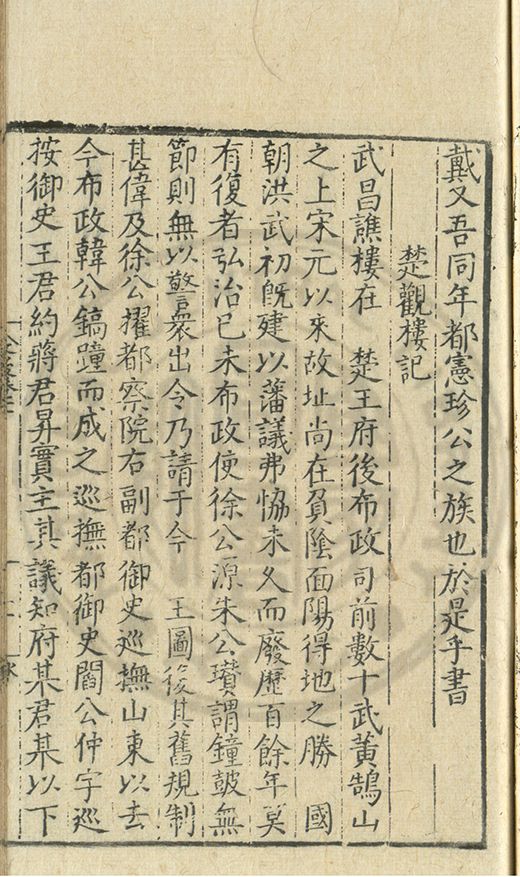 戴又吾同年都憲珍公之族也於是乎書
楚觀樓記
武昌譙樓在 楚王府後布政司前數十武黃鵠山
之上宋元以來故址尚在負陰面陽得地之勝 國
朝洪武初旣建以藩議弗恊未久而廢歷百餘年莫
有復者弘治己未布政使徐公源朱公瓚謂鐘鼓無
節則無以警衆出令乃請于今 王圖復其舊規制
甚偉及徐公擢都察院右副都御史巡撫山東以去
今布政韓公鎬踵而成之巡撫都御史閻公仲宇巡
按御史王君約蔣君昇實主其議知府某君某以下